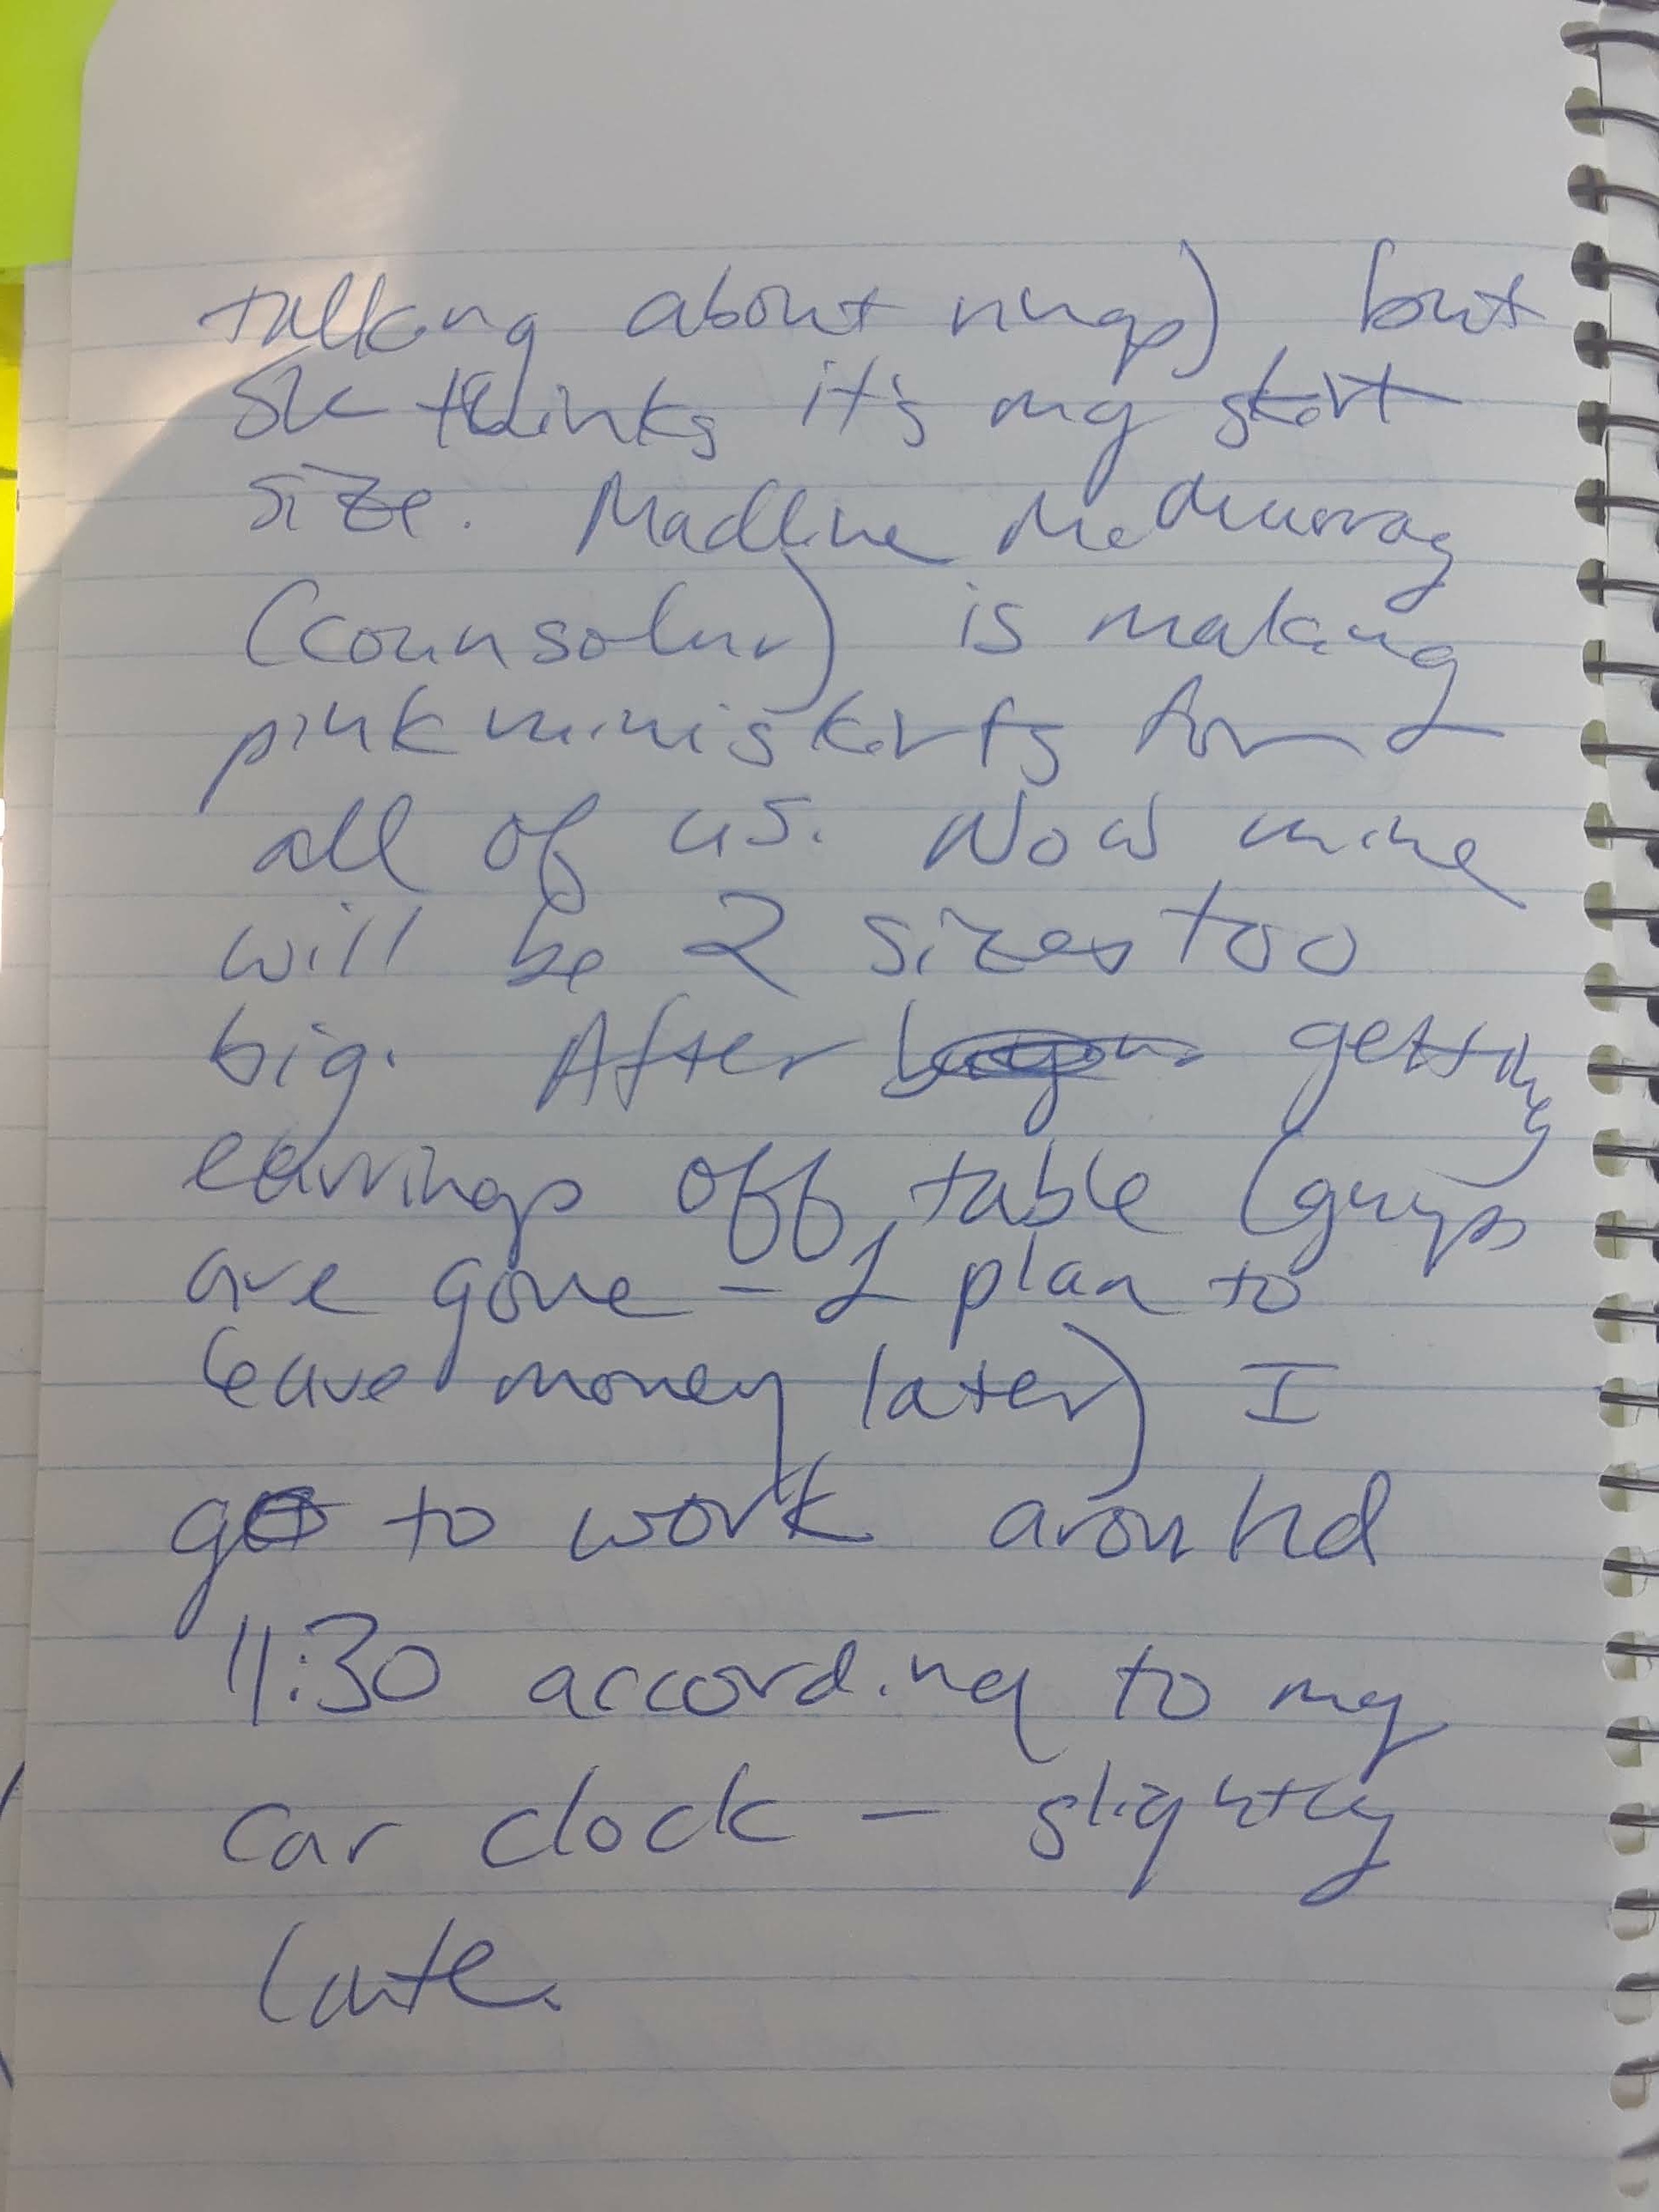 talking about rings) but
she thinks it's my skirt
size. Madline McMurray
(counsolur) is making
pink miniskirts for
all of us. Now mine
will be 2 sizes too
big. After getting
earrings off table (guys
are gone - I plan to
leave money later) I
go to work around
11:30 according to my
car clock - slightly
late.